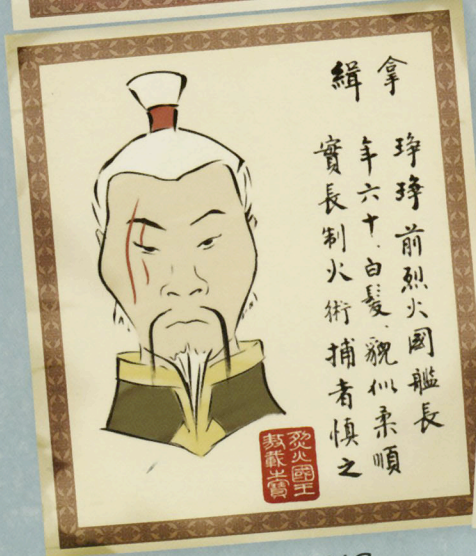 拿緝
琤琤前烈火國艦長
年六十、白髮、貌似柔順
實長制火術捕者慎之
烈火國王